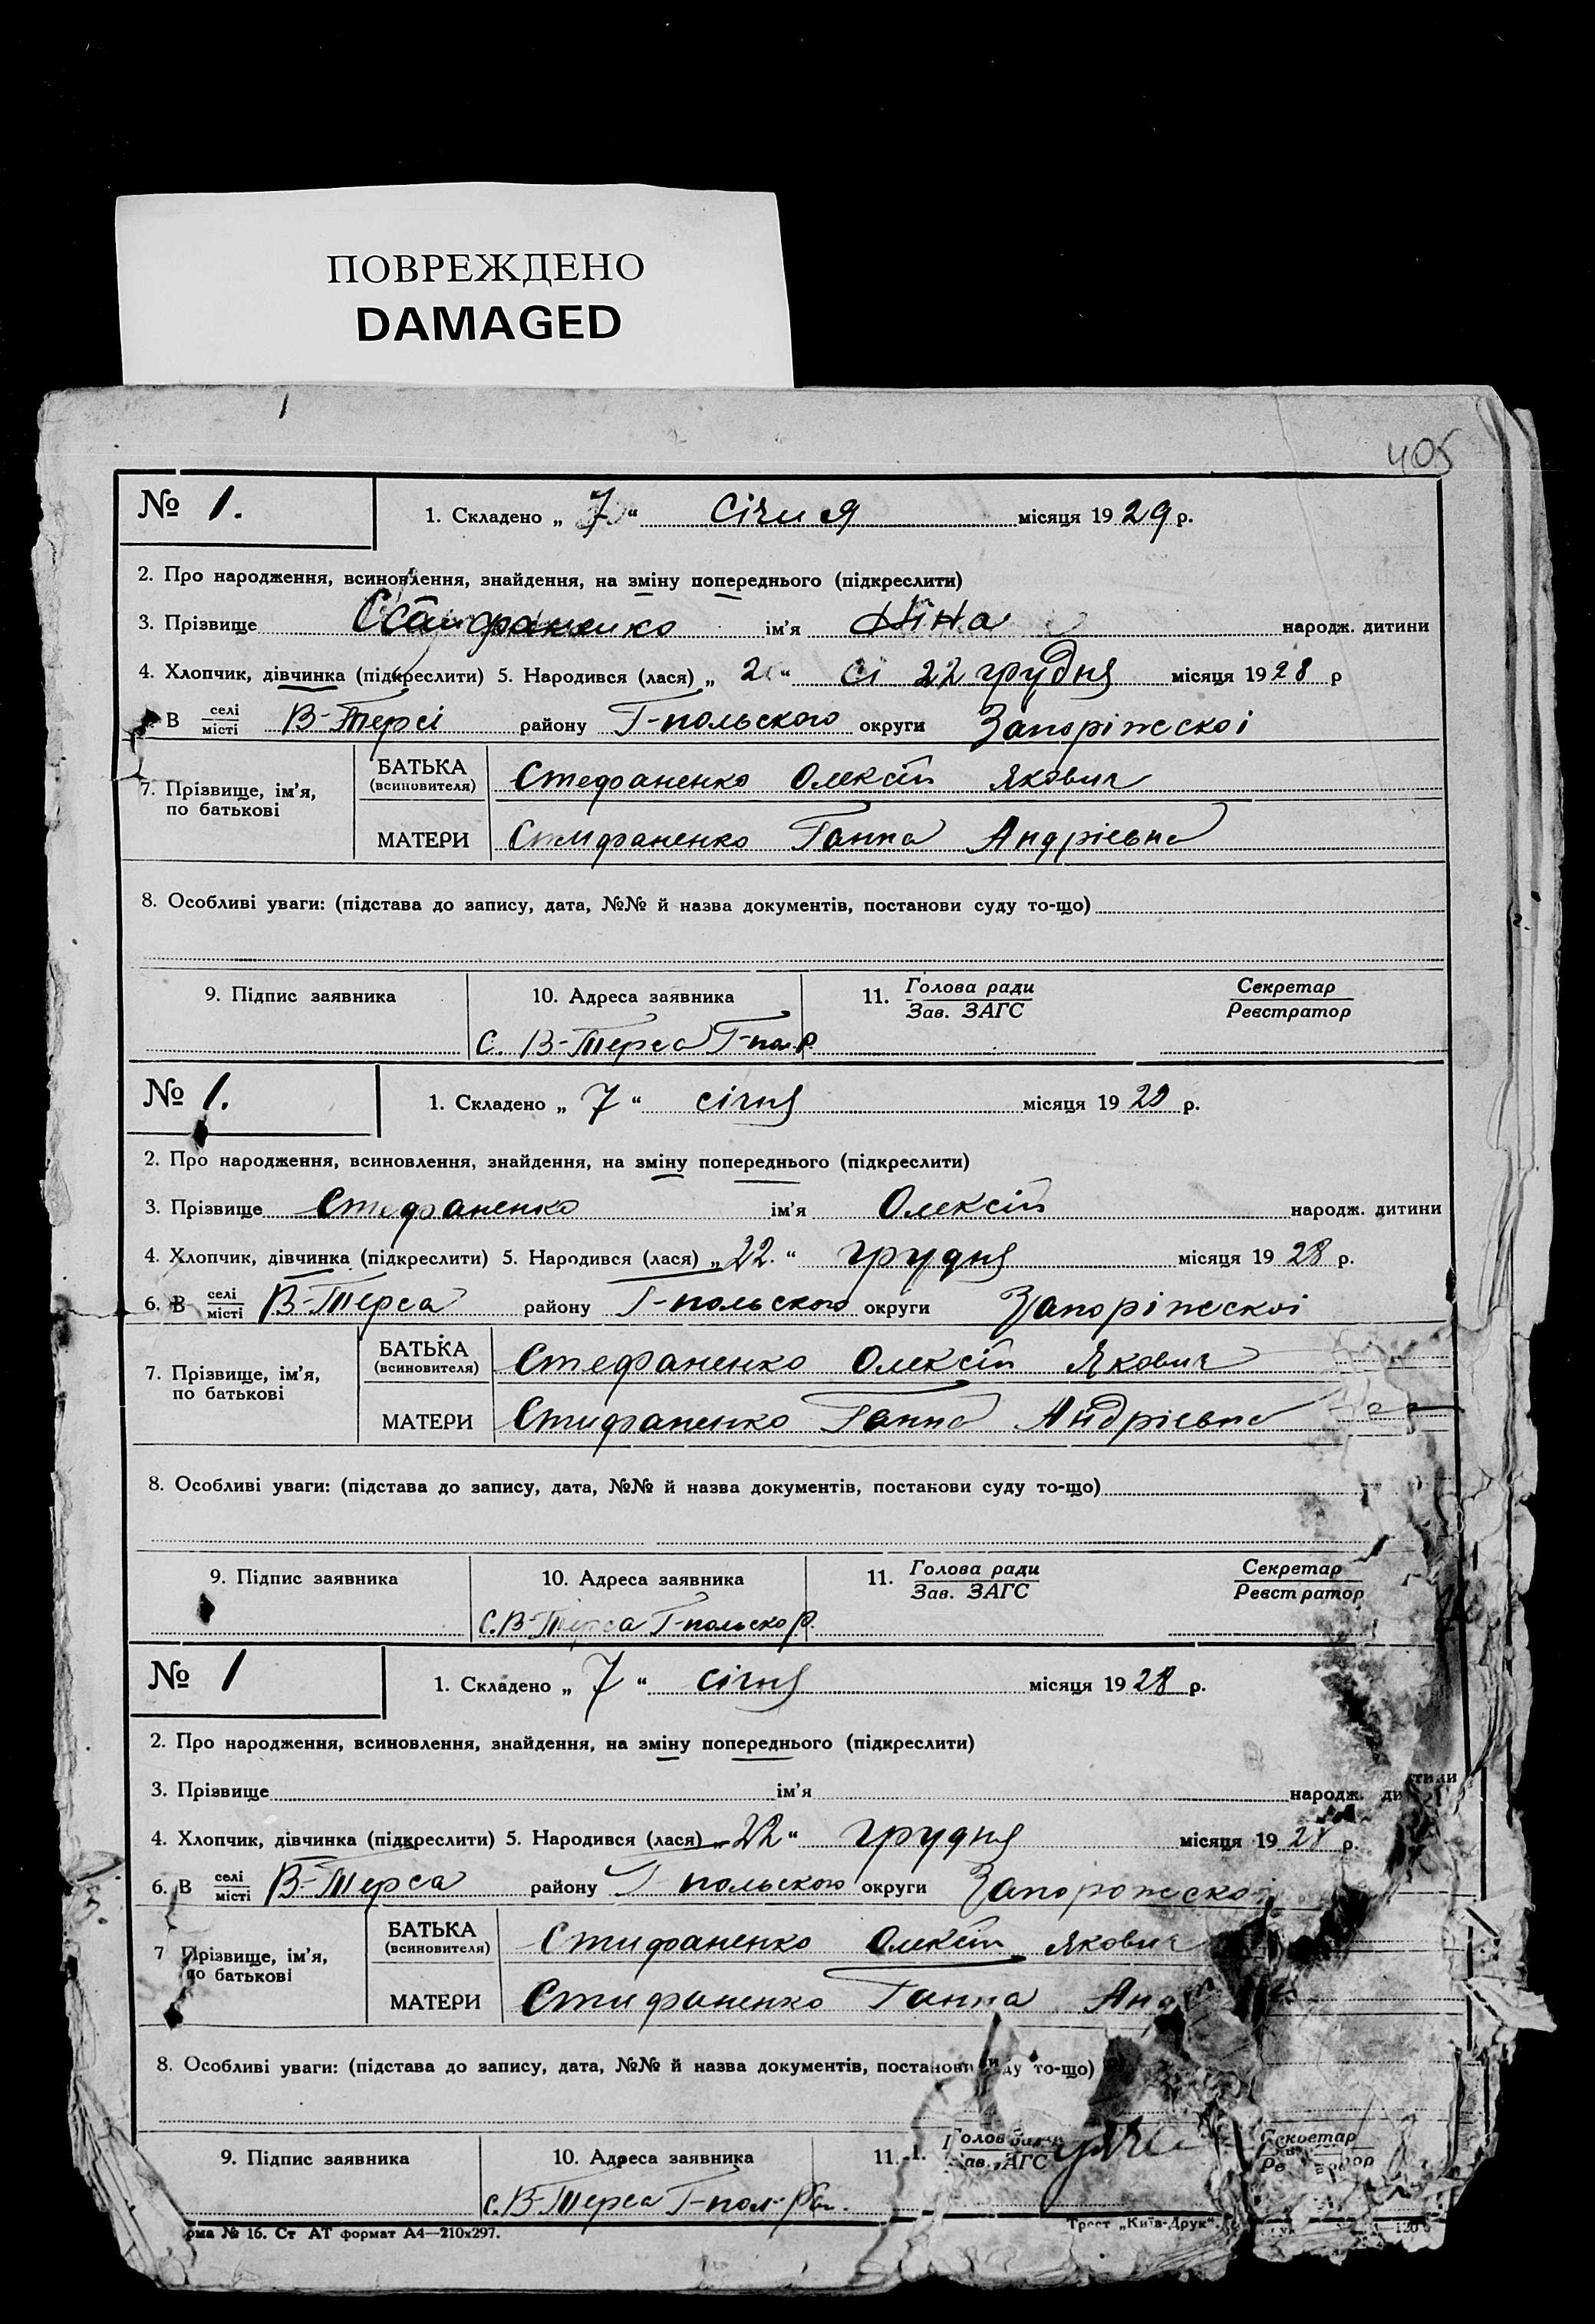 ПОВРЕЖДЕНО
DAMAGED
1
405
№ 1.
1. Складено „ 7 “ Січня місяця 1929 р.
2. Про народження, всиновлення, знайдення, на зміну попереднього (підкреслити)
3. Прізвище ім’я Ніна народж. дитини
4. Хлопчик, дівчинка (підкреслити) 5. Народився (лася) „ 2 “ сі 22 грудня місяця 1928 р
В селі місті В-Терсі району Г-польского округи Запоріжскоі
7. Прізвище, ім’я, по батькові
БАТЬКА (всиновителя) Стефаненко Олексій Якович
МАТЕРИ Стифаненко Ганна Андріевна
8. Особливі уваги: (підстава до запису, дата, №№ й назва документів, постанови суду то-що)
9. Підпис заявника 10. Адреса заявника 11. Голова ради Зав. ЗАГС Секретар Реєстратор
С. В-Терса Г-пол.р.
№ 1.
1. Складено „ 7 “ січня місяця 1929 р.
2. Про народження, всиновлення, знайдення, на зміну попереднього (підкреслити)
3. Прізвище Стефаненко ім’я Олексій народж. дитини
4. Хлопчик, дівчинка (підкреслити) 5. Народився (лася) „ 22. “ грудня місяця 1928 р.
6. В селі місті В-Терса району Г-польского округи Запоріжскоі
7. Прізвище, ім’я, по батькові
БАТЬКА (всиновителя) Стефаненко Олексій Якович
МАТЕРИ Стифаненко Ганна Андріевна
8. Особливі уваги: (підстава до запису, дата, №№ й назва документів, постанови суду то-що)
9. Підпис заявника 10. Адреса заявника 11. Голова ради Зав. ЗАГС Секретар Реєстратор
С. В-Терса Г-польско р.
№ 1
1. Складено „ 7 “ січня місяця 1928 р.
2. Про народження, всиновлення, знайдення, на зміну попереднього (підкреслити)
3. Прізвище ім’я народж. дитини
4. Хлопчик, дівчинка (підкреслити) 5. Народився (лася) „ 22 “ грудня місяця 1928 р.
6. В селі місті В-Терса району Г-польского округи Запорожско
7 Прізвище, ім’я, по батькові
БАТЬКА (всиновителя) Стифаненко Олексій Якович
МАТЕРИ Стифаненко Ганна
8. Особливі уваги: (підстава до запису, дата, №№ й назва документів, постанови то-що)
9. Підпис заявника 10. Адреса заявника 11. Секретар
с. В-Терса Г-пол.
рма № 16. Ст АТ формат А4—210х297. Трест „Київ-Друк“.